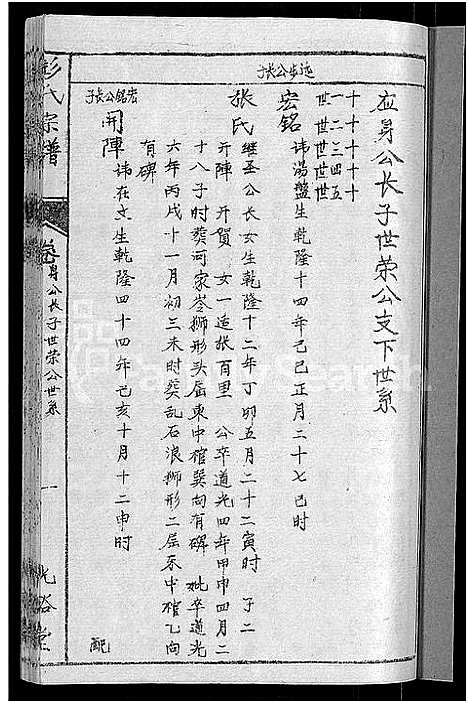 应身公长子世荣公支下世系
十一世
十二世
十三世
十四世
十五世
远步公长子
宏铭 讳汤盤生乾隆十四年己巳正月二十七巳时
张氏 继圣公长女生乾隆十二年丁卯五月二十二寅时 子二
开陣 开贺 女一适张百里 公卒道光四年甲申四月二
十八子时葬河家岺狮形头届東中棺巽向有碑 妣卒道光
六年丙戌十一月初三未时葬乱石浪狮形二届东中棺乙向
有碑
宏铭公长子
開陣 讳在文生乾隆四十四年己亥十月十二申时
配
彭氏宗谱
卷
身公长子世荣公世系
一
光裕堂